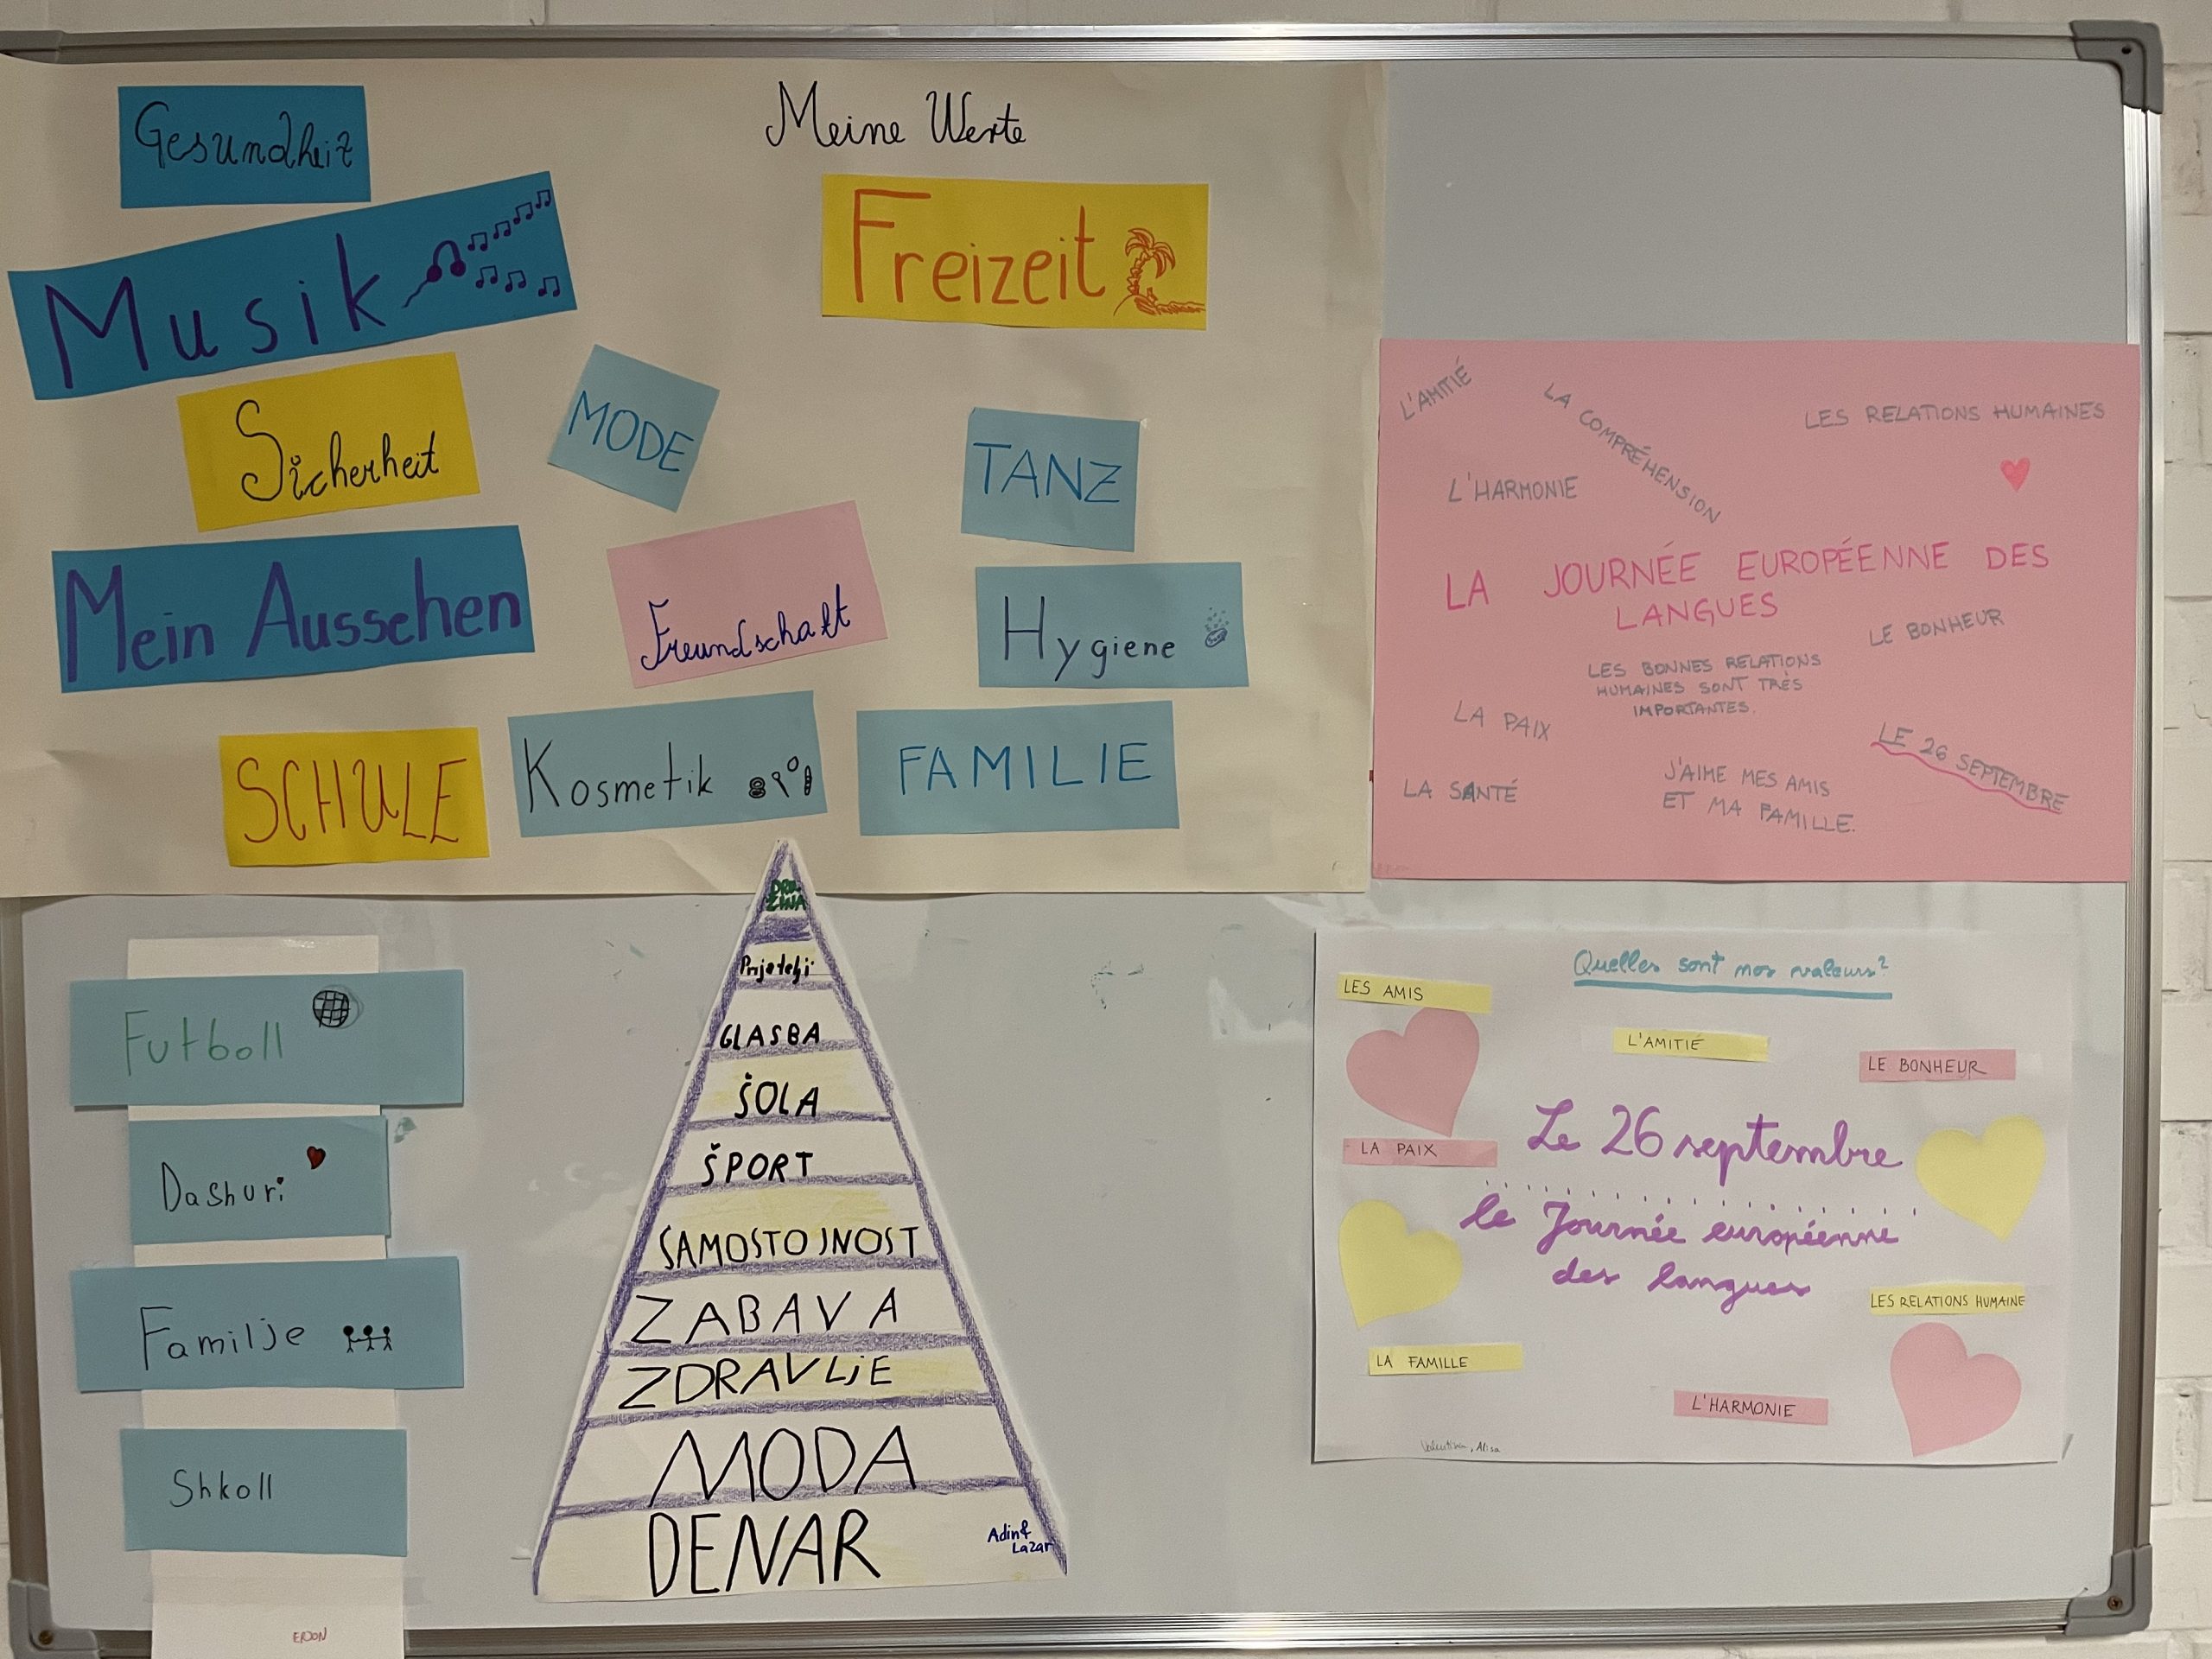 Meine Werte
Gesundheit
Musik
Freizeit
Sicherheit
MODE
TANZ
Mein Aussehen
Freundschaft
Hygiene
SCHULE
Kosmetik
FAMILIE
L'AMITIÉ
LA COMPRÉHENSION
LES RELATIONS HUMAINES
L'HARMONIE
LA JOURNÉE EUROPÉENNE DES
LANGUES
LE BONHEUR
LES BONNES RELATIONS
HUMAINES SONT TRÈS
IMPORTANTES.
LA PAIX
LE 26 SEPTEMBRE
LA SANTÉ
J'AIME MES AMIS
ET MA FAMILLE.
Futboll
Dashuri
Familje
Shkoll
DRU-
ŽINA
Prijatelji
GLASBA
ŠOLA
ŠPORT
SAMOSTOJNOST
ZABAVA
ZDRAVLJE
MODA
DENAR
Adin &
Lazar
Quelles sont nos valeurs?
LES AMIS
L'AMITIÉ
LE BONHEUR
LA PAIX
Le 26 septembre
la Journée européenne
des langues
LES RELATIONS HUMAINE
LA FAMILLE
L'HARMONIE